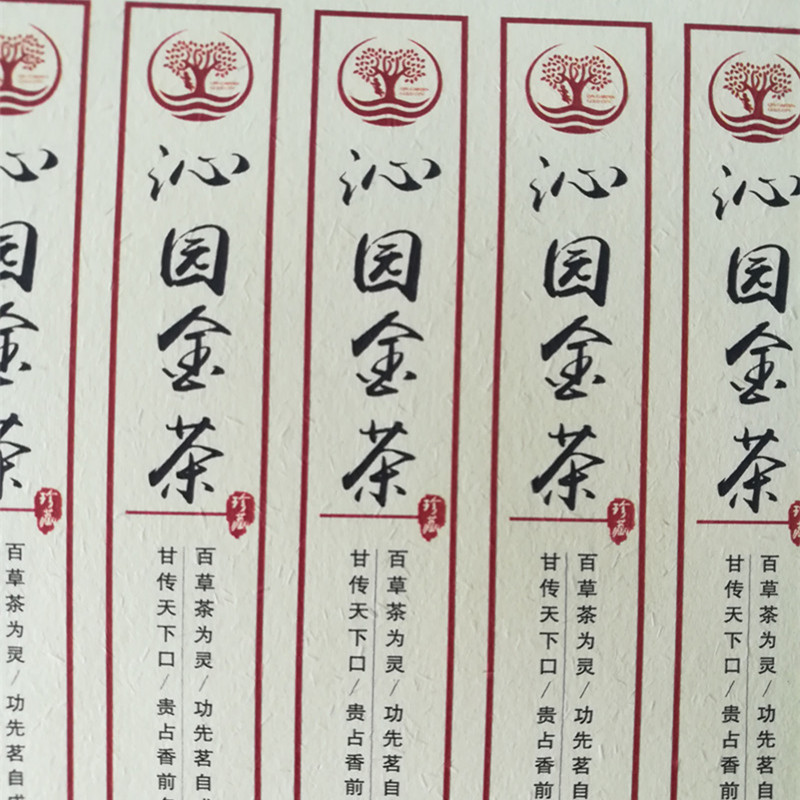 沁园金茶
珍藏
百草茶为灵/功先茗自
沁园金茶
珍藏
百草茶为灵/功先茗自
甘传天下口/贵占香前
沁园金茶
珍藏
百草茶为灵/功先茗自
甘传天下口/贵占香前
沁园金茶
珍藏
百草茶为灵/功先茗自
甘传天下口/贵占香前
沁园金茶
百草茶为灵/功先茗自
甘传天下口/贵占香前